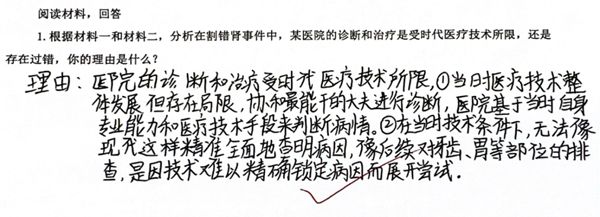 阅读材料，回答
1.根据材料一和材料二，分析在割错肾事件中，某医院的诊断和治疗是受时代医疗技术所限，还是
存在过错，你的理由是什么？
理由：医院的诊断和治疗受时代医疗技术所限，①当日医疗技术整
体发展但存在局限，协和最能干的大夫进行诊断，医院基于当时自身
专业能力和医疗技术手段来判断病情。②在当时技术条件下，无法像
现代这样精准全面地查明病因，像后续对牙齿、胃等部位的排
查，是因技术难以精确锁定病因而展开尝试．